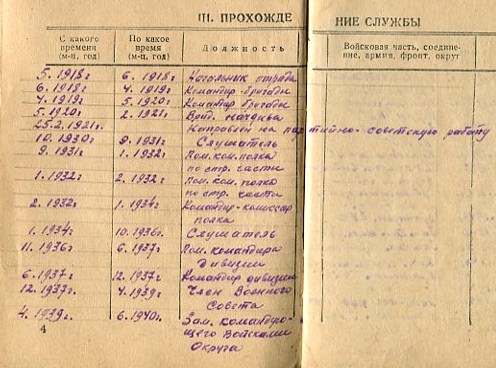 III. ПРОХОЖДЕ НИЕ СЛУЖБЫ
С какого времени (м-ц, год) По какое время (м-ц, год) Должность Войсковая часть, соедине-
ние, армия, фронт, округ
5. 1918г 6. 1918г Начальник отряда
6. 1918г 4. 1919г Командир бригады
4. 1919г 5. 1920г Командир бригады
5. 1920г 2. 1921г Врид. начдива
25.2.1921г. Направлен на партийно-советскую работу
10. 1930г 9. 1931г Слушатель
9. 1931г 1. 1932г Пом. ком. полка
по стр. части
1. 1932г 2. 1932г Пом. ком. полка
по стр. части
2. 1932г 1. 1934г Командир-комиссар
полка
1. 1934г 10. 1936г Слушатель
11. 1936г 6. 1937г Пом. командира
дивизии
6. 1937г 12. 1937г Командир дивизии
12. 1937г. 4. 1939г Член Военного
Совета
4. 1939г. 6. 1940г. Зам. командую-
щего Войсками
Округа
4